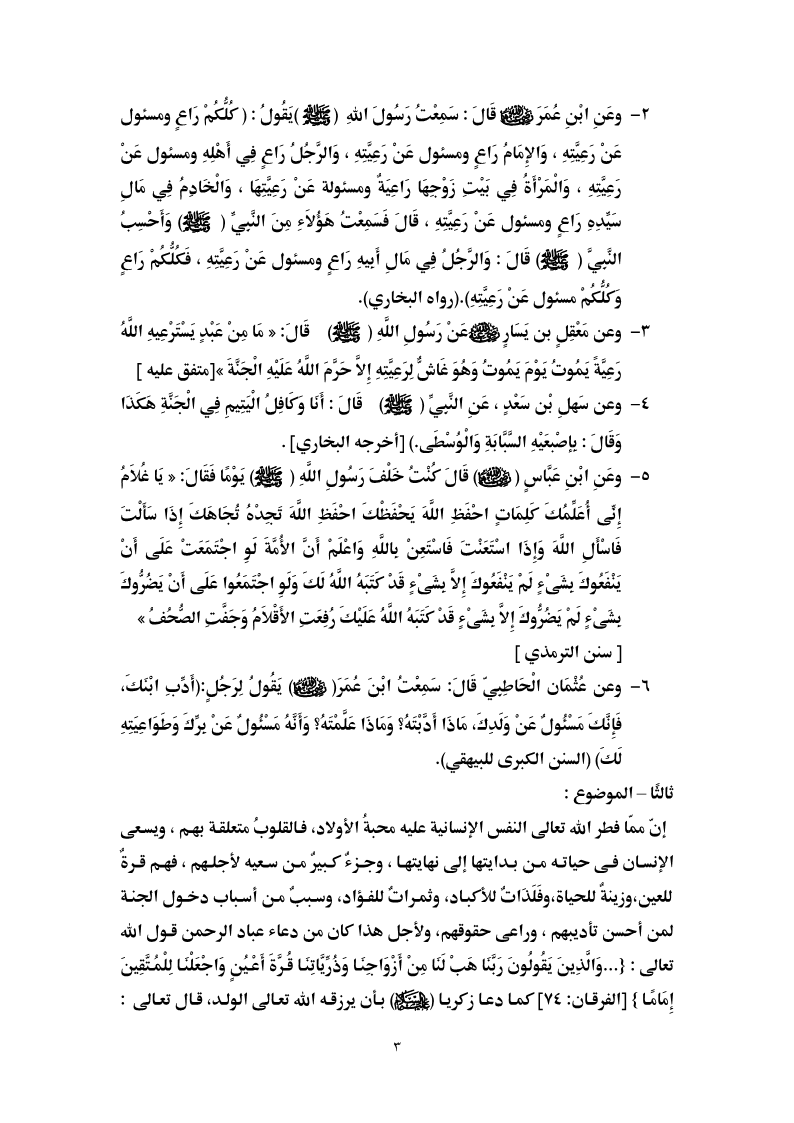 ٢- وعَنِ ابْنِ عُمَرَ قَالَ : سَمِعْتُ رَسُولَ اللهِ (ﷺ)يَقُولُ : ( كُلُّكُمْ رَاعٍ ومسئول
عَنْ رَعِيَّتِهِ ، وَالإِمَامُ رَاعٍ ومسئول عَنْ رَعِيَّتِهِ ، وَالرَّجُلُ رَاعٍ فِي أَهْلِهِ ومسئول عَنْ
رَعِيَّتِهِ ، وَالْمَرْأَةُ فِي بَيْتِ زَوْجِهَا رَاعِيَةٌ ومسئولة عَنْ رَعِيَّتِهَا ، وَالْخَادِمُ فِي مَالِ
سَيِّدِهِ رَاعٍ ومسئول عَنْ رَعِيَّتِهِ ، قَالَ فَسَمِعْتُ هَؤُلاَءِ مِنَ النَّبيِّ ( ﷺ) وَأَحْسِبُ
النَّبيَّ ( ﷺ) قَالَ : وَالرَّجُلُ فِي مَالِ أَبِيهِ رَاعٍ ومسئول عَنْ رَعِيَّتِهِ ، فَكُلُّكُمْ رَاعٍ
وَكُلُّكُمْ مسئول عَنْ رَعِيَّتِهِ).(رواه البخاري).
٣- وعن مَعْقِلٍ بن يَسَارٍ عَنْ رَسُولِ اللَّهِ ( ﷺ) قَالَ: « مَا مِنْ عَبْدٍ يَسْتَرْعِيهِ اللَّهُ
رَعِيَّةً يَمُوتُ يَوْمَ يَمُوتُ وَهُوَ غَاشٌّ لِرَعِيَّتِهِ إِلاَّ حَرَّمَ اللَّهُ عَلَيْهِ الْجَنَّةَ »[متفق عليه ]
٤- وعن سَهلِ بْن سَعْدٍ ، عَنِ النَّبيِّ ( ﷺ) قَالَ : أَنَا وَكَافِلُ الْيَتِيمِ فِي الْجَنَّةِ هَكَذَا
وَقَالَ : بِإصْبَعَيْهِ السَّبَّابَةِ وَالْوُسْطَى.) [أخرجه البخاري] .
٥- وعَنِ ابْنِ عَبَّاسٍ () قَالَ كُنْتُ خَلْفَ رَسُولِ اللَّهِ ( ﷺ) يَوْمًا فَقَالَ: « يَا غُلاَمُ
إِنِّى أُعَلِّمُكَ كَلِمَاتٍ احْفَظِ اللَّهَ يَحْفَظْكَ احْفَظِ اللَّهَ تَجِدْهُ تُجَاهَكَ إِذَا سَأَلْتَ
فَاسْأَلِ اللَّهَ وَإِذَا اسْتَعَنْتَ فَاسْتَعِنْ بِاللَّهِ وَاعْلَمْ أَنَّ الأُمَّةَ لَوِ اجْتَمَعَتْ عَلَى أَنْ
يَنْفَعُوكَ بِشَىْءٍ لَمْ يَنْفَعُوكَ إِلاَّ بِشَىْءٍ قَدْ كَتَبَهُ اللَّهُ لَكَ وَلَوِ اجْتَمَعُوا عَلَى أَنْ يَضُرُّوكَ
بِشَىْءٍ لَمْ يَضُرُّوكَ إِلاَّ بِشَىْءٍ قَدْ كَتَبَهُ اللَّهُ عَلَيْكَ رُفِعَتِ الأَقْلاَمُ وَجَفَّتِ الصُّحُفُ »
[ سنن الترمذي ]
٦- وعن عُثْمَان الْحَاطِبِيّ قَالَ: سَمِعْتُ ابْنَ عُمَرَ() يَقُولُ لِرَجُلٍ:(أَدِّبِ ابْنَكَ،
فَإِنَّكَ مَسْئُولٌ عَنْ وَلَدِكَ، مَاذَا أَدَّبْتَهُ؟ وَمَاذَا عَلَّمْتَهُ؟ وَأَنَّهُ مَسْئُولٌ عَنْ بِرِّكَ وَطَوَاعِيَتِهِ
لَكَ) (السنن الكبرى للبيهقي).
ثالثًا – الموضوع :
إنّ ممّا فطر الله تعالى النفس الإنسانية عليه محبةُ الأولاد، فالقلوبُ متعلقة بهم ، ويسعى
الإنسان فى حياته من بدايتها إلى نهايتها ، وجزءٌ كبيرٌ من سعيه لأجلهم ، فهم قرةٌ
للعين،وزينةٌ للحياة،وفَلَذَاتٌ للأكباد، وثمراتٌ للفؤاد، وسببٌ من أسباب دخول الجنة
لمن أحسن تأديبهم ، وراعى حقوقهم، ولأجل هذا كان من دعاء عباد الرحمن قول الله
تعالى : {...وَالَّذِينَ يَقُولُونَ رَبَّنَا هَبْ لَنَا مِنْ أَزْوَاجِنَا وَذُرِّيَّاتِنَا قُرَّةَ أَعْيُنٍ وَاجْعَلْنَا لِلْمُتَّقِينَ
إِمَامًا } [الفرقان: ٧٤] كما دعا زكريا () بأن يرزقه الله تعالى الولد، قال تعالى :
٣